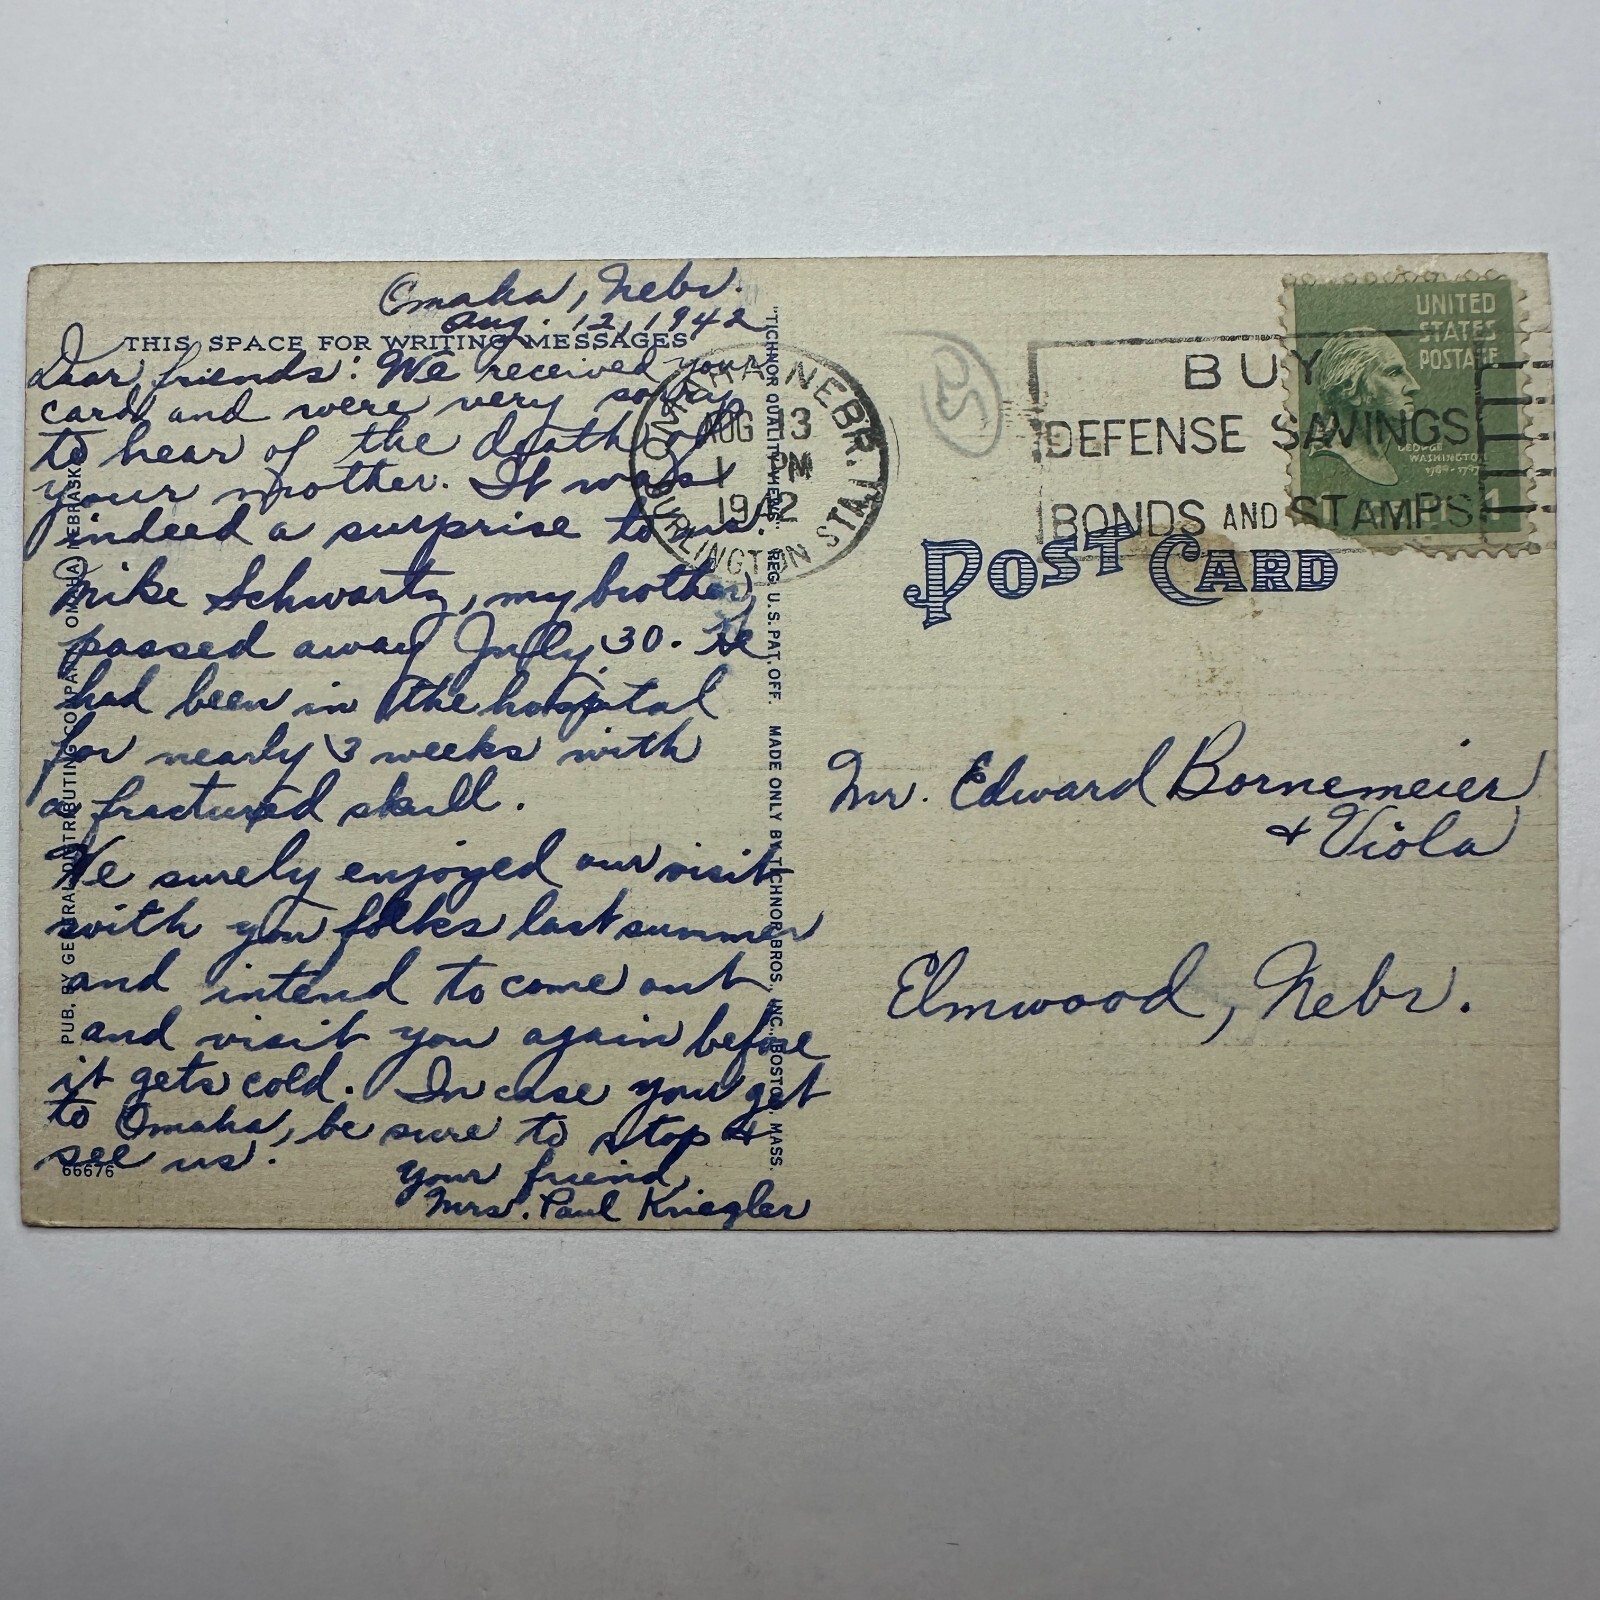 Omaha, Nebr.
Aug. 12, 1942
THIS SPACE FOR WRITING MESSAGES
Dear friends: We received your
card and were very sorry
to hear of the death of
your mother. It was
indeed a surprise to us.
Mike Schwartz, my brother,
passed away July 30. He
had been in the hospital
for nearly 3 weeks with
a fractured skull.
We surely enjoyed our visit
with you folks last summer
and intend to come out
and visit you again before
it gets cold. In case you get
to Omaha, be sure to stop &
see us.
66676
Your friend,
Mrs. Paul Kriegler
PUB. BY GENERAL DISTRIBUTING COMPANY, OMAHA, NEBRASKA
"TICHNOR QUALITY VIEWS," REG. U.S. PAT. OFF. MADE ONLY BY TICHNOR BROS., INC., BOSTON, MASS.
OMAHA, NEBR.
AUG 13
1 PM
1942
BURLINGTON STA.
25
BUY
DEFENSE SAVINGS
BONDS AND STAMPS
UNITED
STATES
POSTAGE
GEORGE
WASHINGTON
1789-1797
POST CARD
Mr. Edward Bornemeier
& Viola
Elmwood, Nebr.